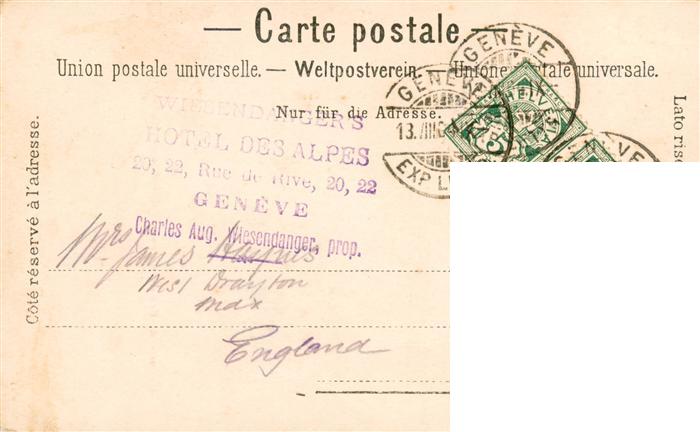 Carte postale
Union postale universelle. — Weltpostverein Unione postale universale.
Nur für die Adresse.
Côté réservé à l'adresse.
Lato rise
WIESENDANGER'S
HOTEL DES ALPES
20, 22, Rue de Rive, 20, 22
GENÈVE
Charles Aug. Wiesendanger, prop.
GENÈVE
GENÈVE
13.VIII.
EXP. L
HELVETIA
5
NÈVE
Mrs James Haynes
West Drayton
Max
England